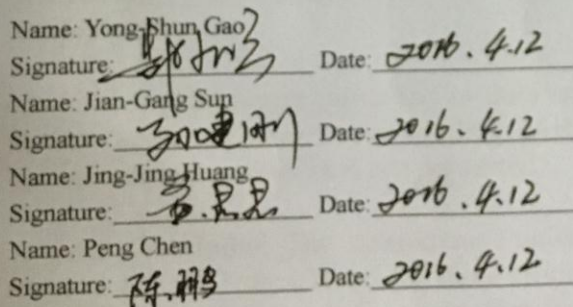 Name: Yong-Shun Gao
Signature: Date: 2016.4.12
Name: Jian-Gang Sun
Signature: 孙建刚 Date: 2016.4.12
Name: Jing-Jing Huang
Signature: Date: 2016.4.12
Name: Peng Chen
Signature: 陈鹏 Date: 2016.4.12